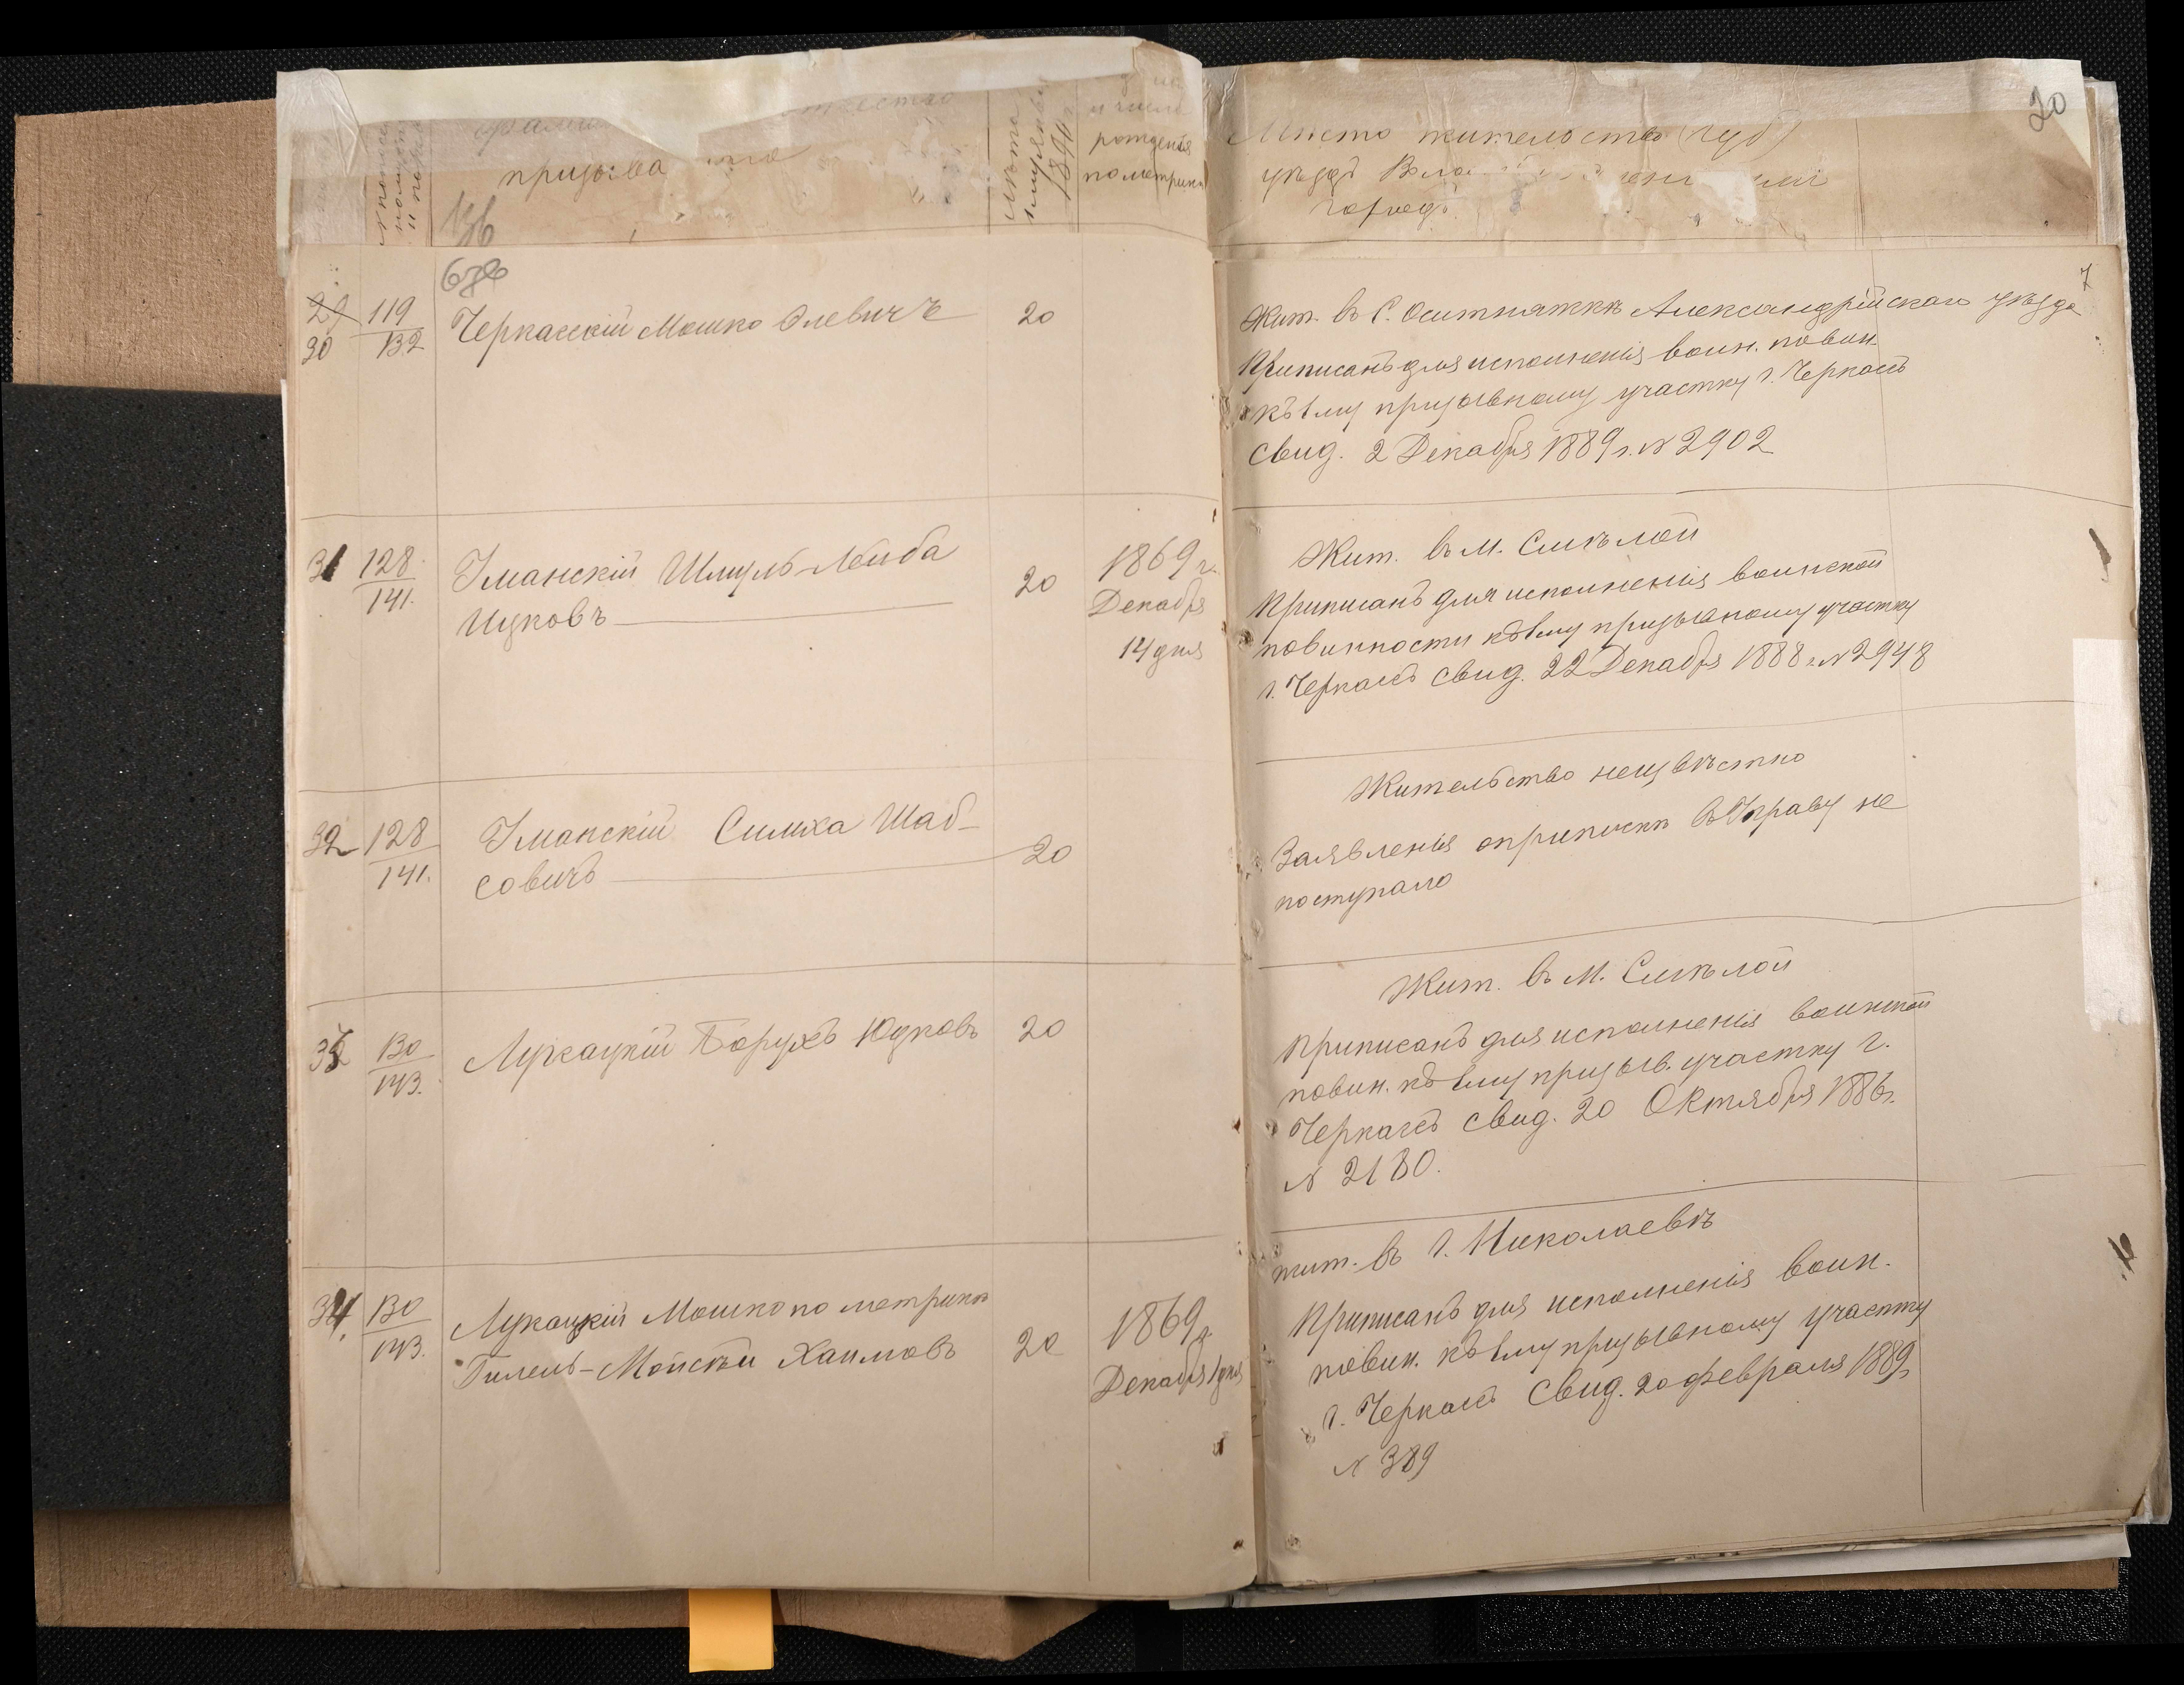 рожденія
призыва
1890 г.
по метрикѣ
20
Мѣсто жительства (губ)
уѣздъ
городъ
7
29
30
119
132
Черкасскій Мошко Элевичъ
20
Жит. въ С. Оситняжкѣ Александрійскаго уѣзда
Приписанъ для исполненія воин. повин.
къ 1му призывному участку г. Черкасъ
свид. 2 Декабря 1889 г. № 2902
31
128
141.
Уманскій Шмуль-Лейба
Ицковъ
20
1869 г.
Декабря
14 дня
Жит. въ М. Смѣлой
Приписанъ для исполненія воинской
повинности къ 1му призывному участку
г. Черкасъ свид. 22 Декабря 1888 г. № 2948
32
128
141.
Уманскій Симха Шаб-
совичъ
20
Жительство неизвѣстно
Заявленія о припискѣ въ Управу не
поступало
33
130
143.
Борухъ Юдковъ
20
Жит. въ М. Смѣлой
Приписанъ для исполненія воинской
повин. къ 1му призыв. участку г.
Черкасъ свид. 20 Октября 1886 г.
№ 2180.
34.
130
143.
Мошко по метрикѣ
Гилель-Мойсей Хаимовъ
20
1869 г.
Декабря 1 дня
жит. въ г. Николаевѣ
Приписанъ для исполненія воин.
повин. къ 1му призывному участку
г. Черкасъ Свид. 20 февраля 1889 г.
№ 389